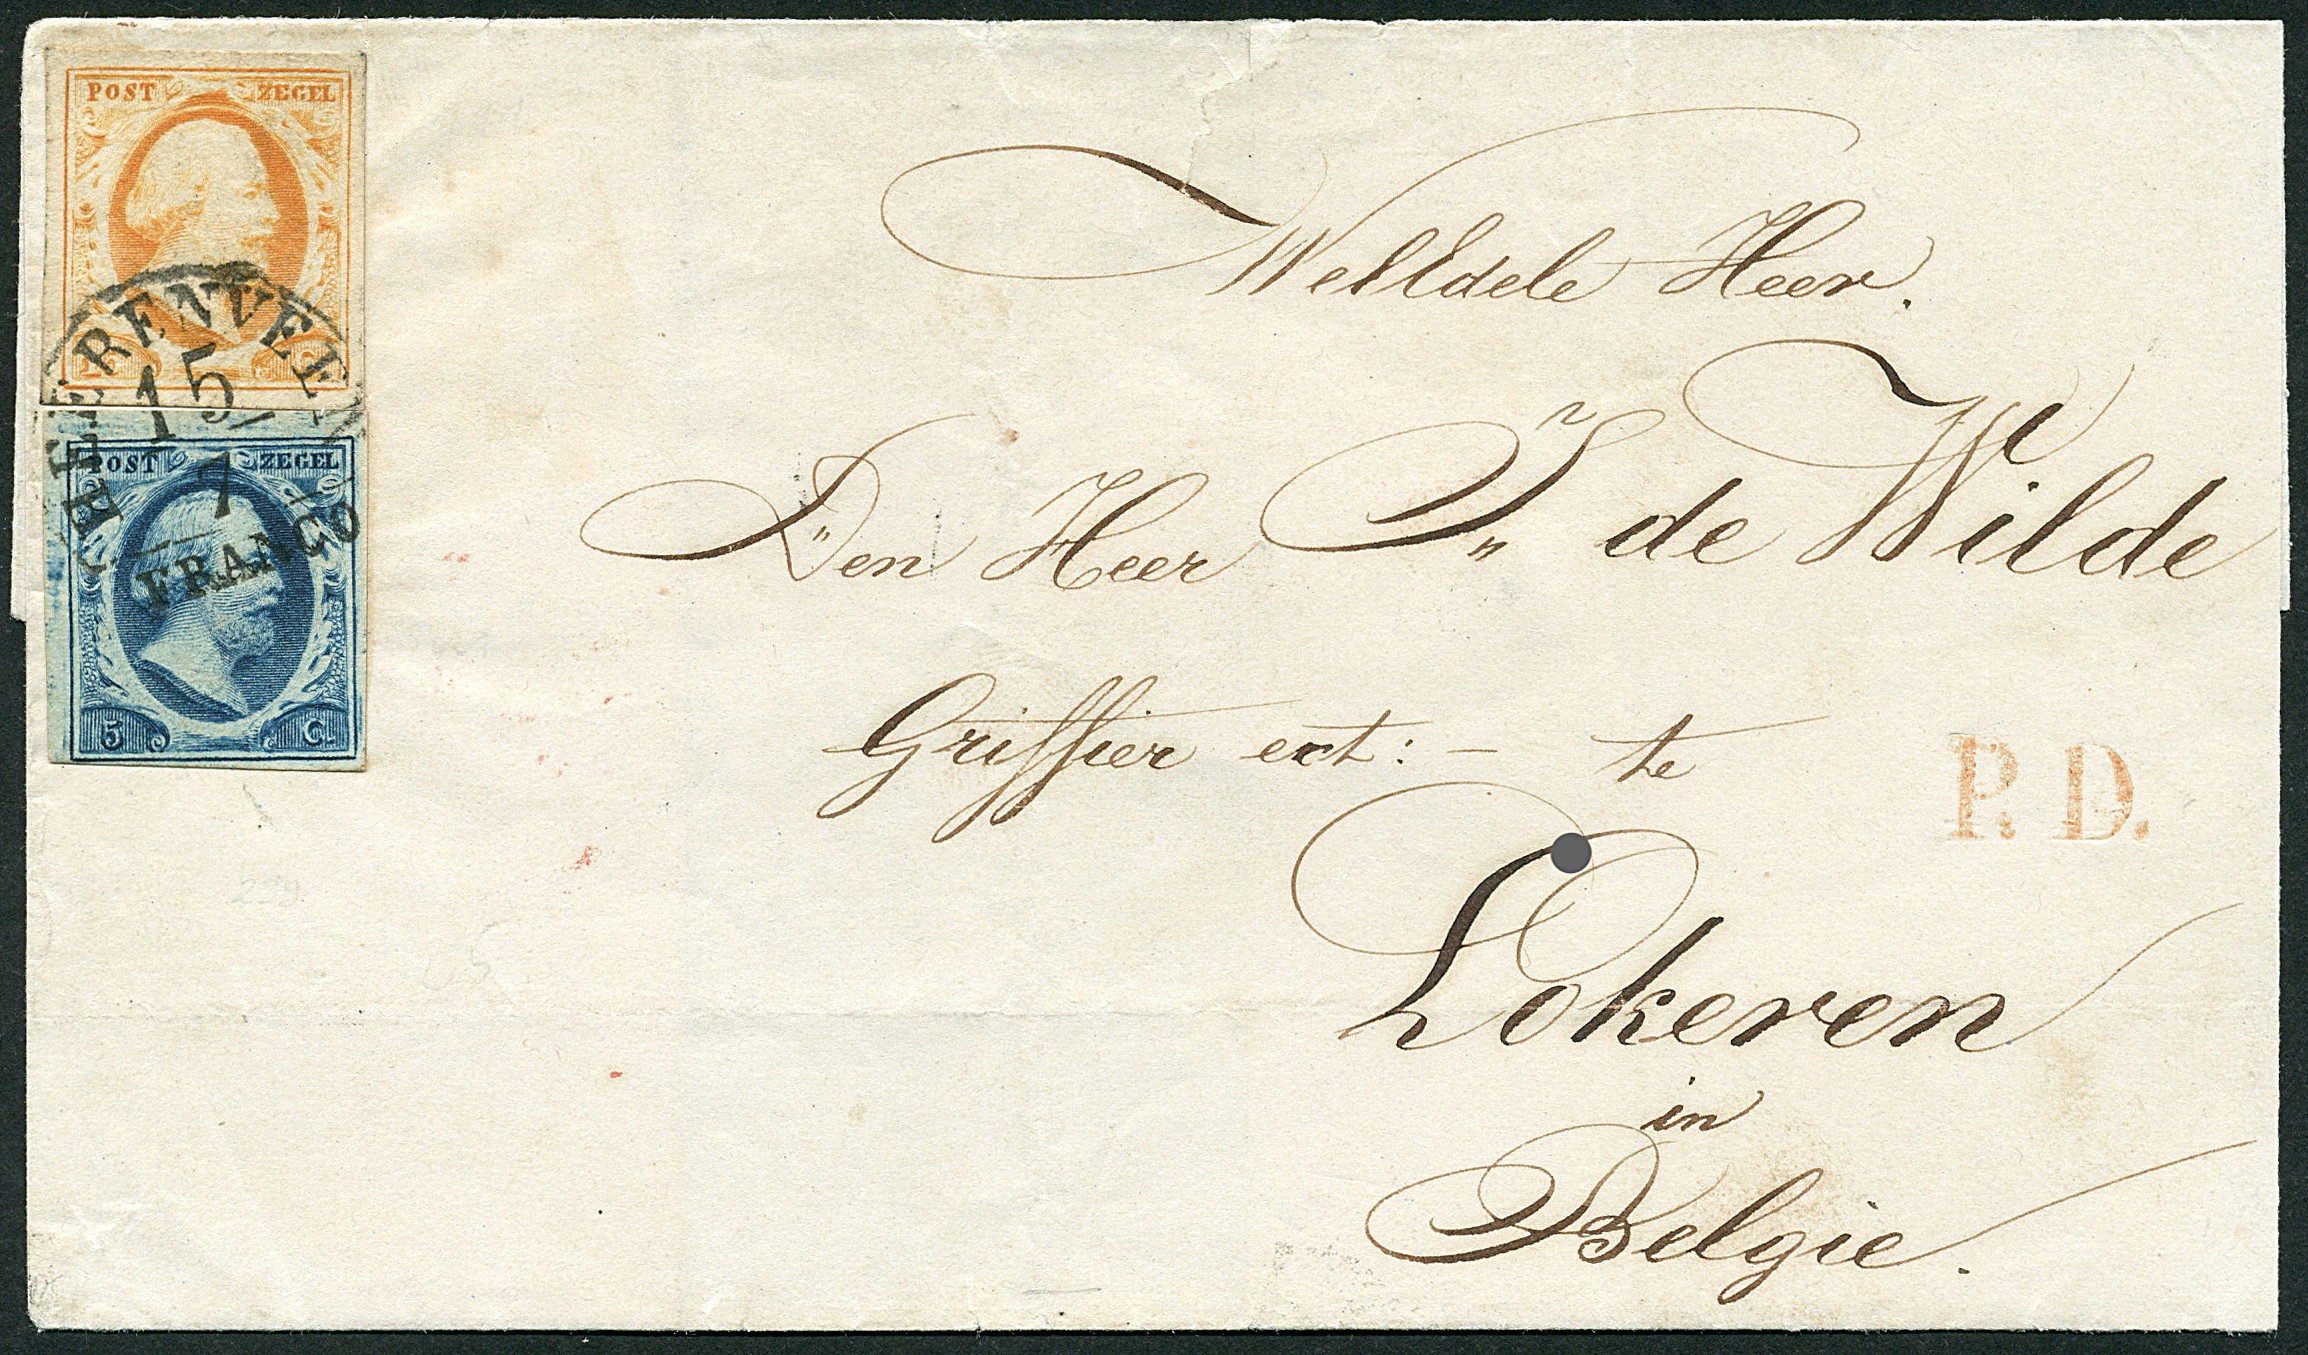 POST ZEGEL
15 C.
HEERENVEEN
15
7
FRANCO
POST ZEGEL
5 C.
WelEdele Heer.
Den Heer J. de Wilde
Griffier ext: - te
P. D.
Lokeren
in
Belgie.